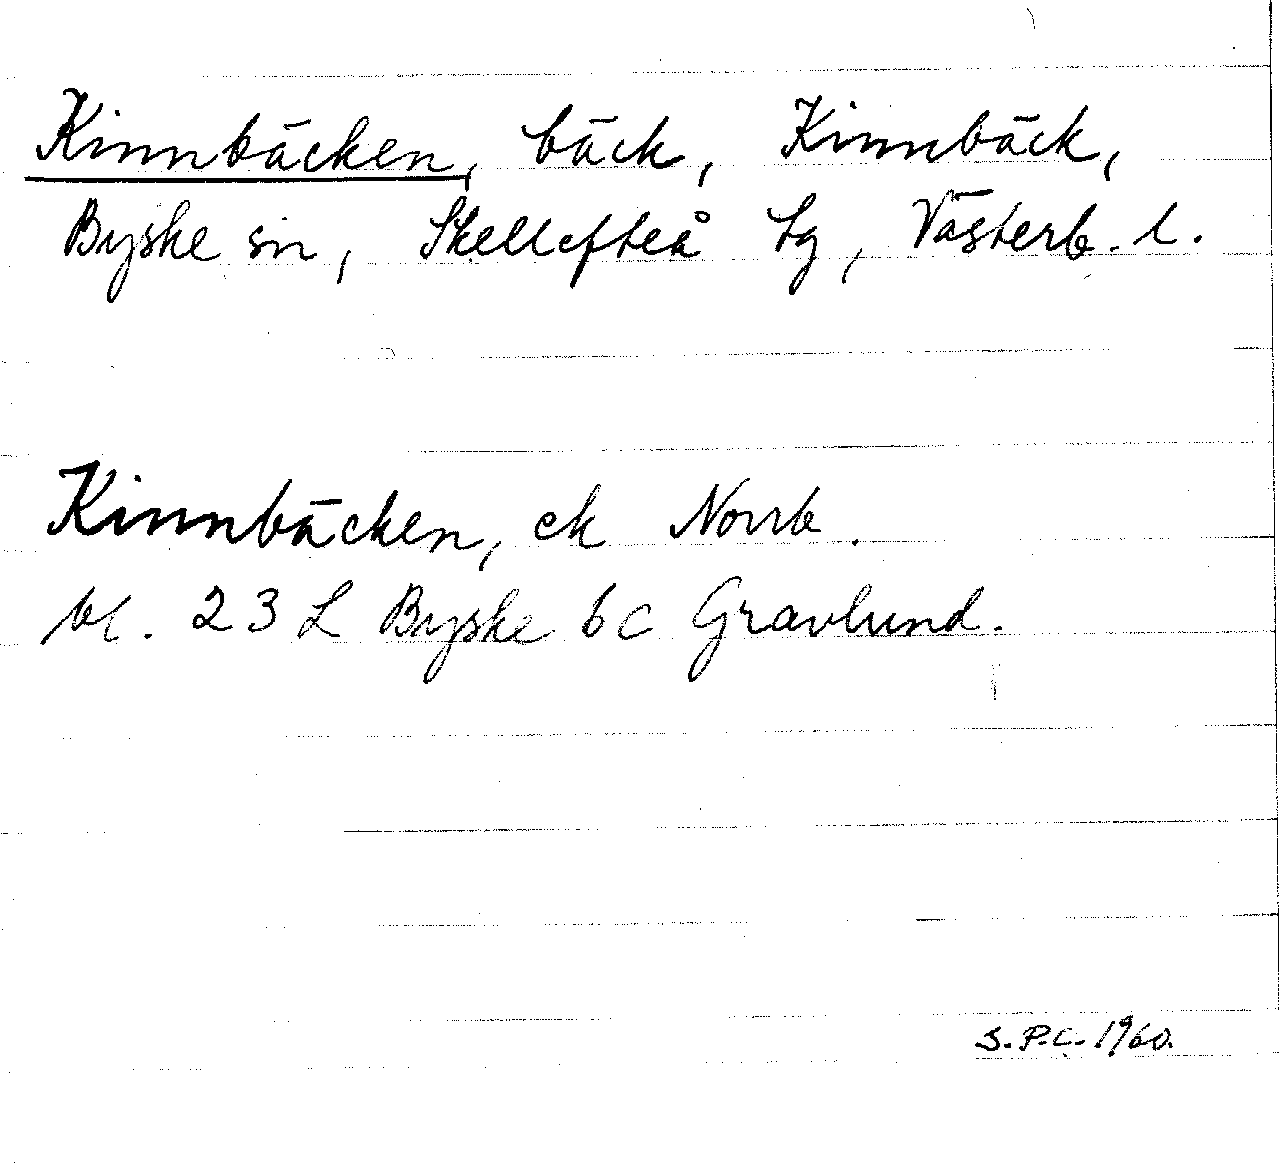 Kinnbäcken, bäck, Kinnbäck,
Byske sn, Skellefteå tg, Västerb. l.
Kinnbäcken, ek Norrb.
bl. 23 L Byske b c Gravlund.
S.P.C. 1960.